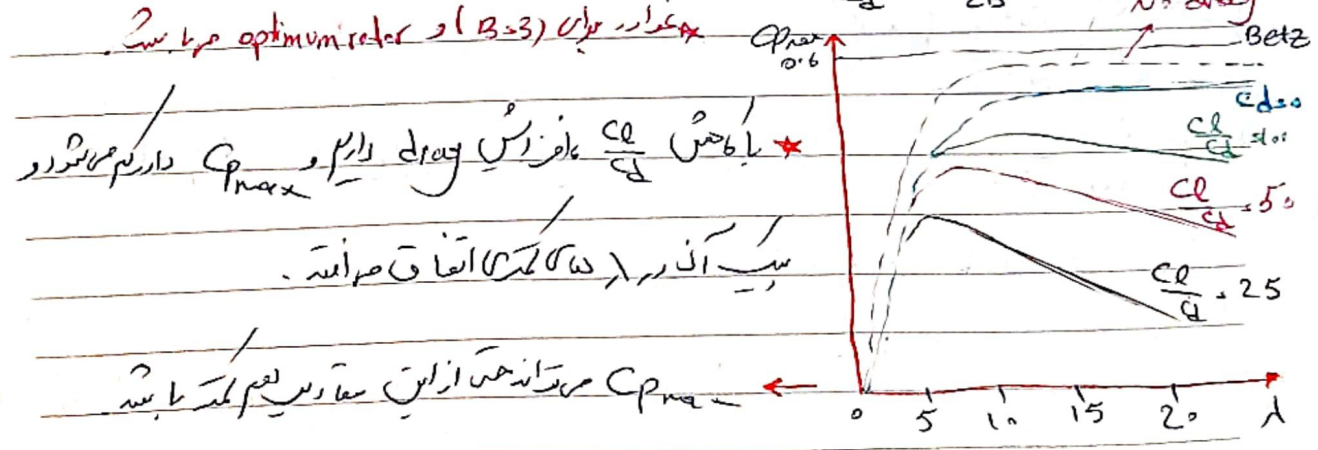 *نمودار برای (B=3) و optimum rotor می‌باشد.
* با کاهش Cl/Cd، افزایش drag داریم و Cpmax دارد کم می‌شود و
پیک آن در λ های کمتری اتفاق می‌افتد.
← Cpmax می‌تواند حتی از این مقادیر هم کمتر باشد
Cpmax
0.6
Betz
Cd=0
Cl/Cd=100
Cl/Cd=50
Cl/Cd=25
0 5 10 15 20 λ